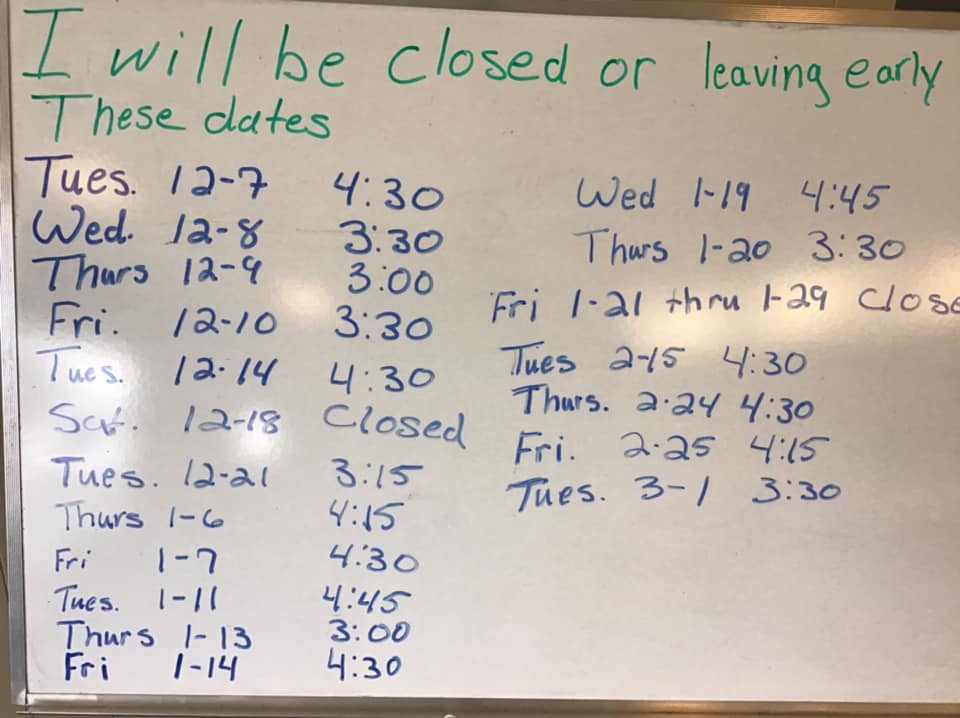 I will be closed or leaving early
These dates
Tues. 12-7 4:30
Wed. 12-8 3:30
Thurs 12-9 3:00
Fri. 12-10 3:30
Tues. 12-14 4:30
Sat. 12-18 Closed
Tues. 12-21 3:15
Thurs 1-6 4:15
Fri 1-7 4:30
Tues. 1-11 4:45
Thurs 1-13 3:00
Fri 1-14 4:30
Wed 1-19 4:45
Thurs 1-20 3:30
Fri 1-21 thru 1-29 Close
Tues 2-15 4:30
Thurs. 2-24 4:30
Fri. 2-25 4:15
Tues. 3-1 3:30